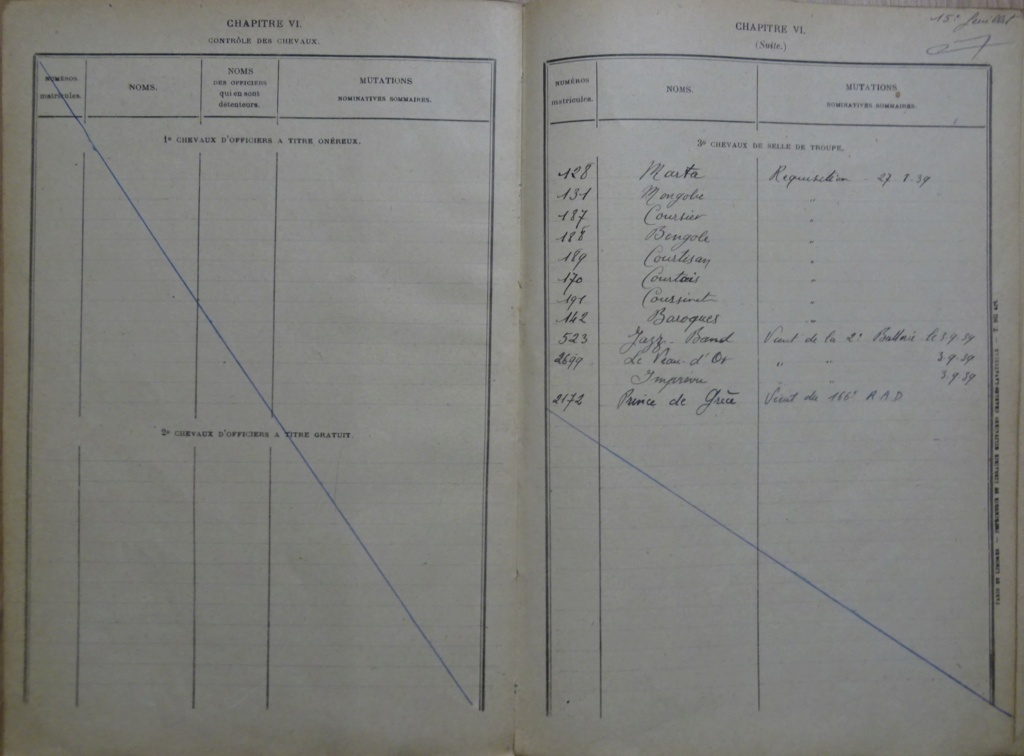 CHAPITRE VI.
CONTRÔLE DES CHEVAUX.
NUMÉROS matricules.
NOMS.
NOMS DES OFFICIERS qui en sont détenteurs.
MUTATIONS NOMINATIVES SOMMAIRES.
1º CHEVAUX D'OFFICIERS A TITRE ONÉREUX.
2º CHEVAUX D'OFFICIERS A TITRE GRATUIT.
15e feuillet
CHAPITRE VI.
(Suite.)
NUMÉROS matricules.
NOMS.
MUTATIONS NOMINATIVES SOMMAIRES.
3º CHEVAUX DE SELLE DE TROUPE.
128 Marta Requisition - 27-8-39
131 Mongolie "
187 Coursier "
188 Bengole "
189 Courtisan "
170 Courtois "
191 Coussinet "
142 Baroques "
523 Jazz-Band Vient de la 2e Batterie le 3.9.39
2699 Le Veau d'Or " " 3.9.39
Imprevu " " 3.9.39
2172 Prince de Grèce Vient du 166e R.A.D